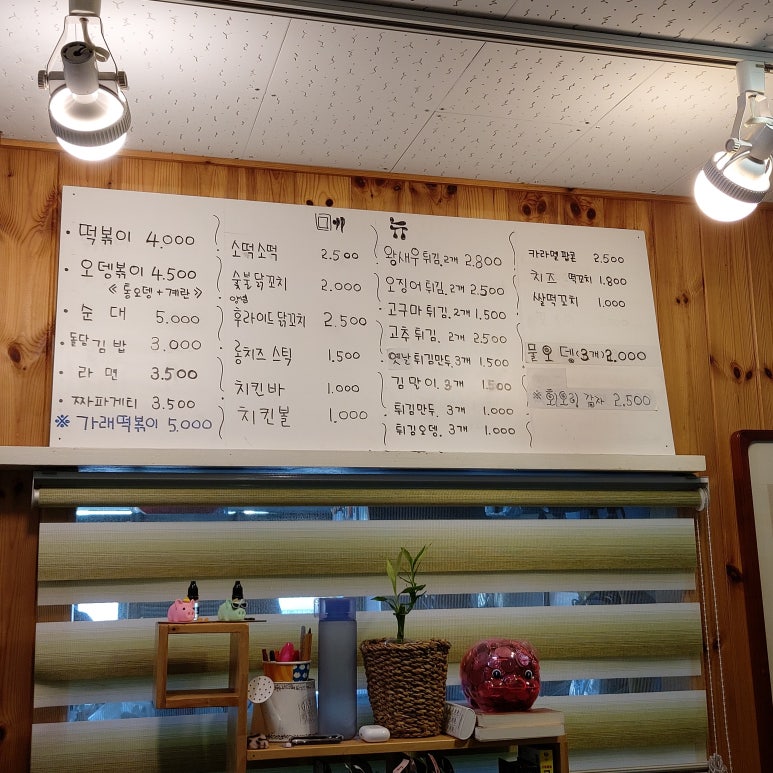 메뉴
떡볶이 4.000
오뎅볶이 4.500
《통오뎅+계란》
순대 5.000
돌담김밥 3.000
라면 3.500
짜파게티 3.500
※ 가래떡볶이 5.000
소떡소떡 2.500
숯불닭꼬치 2.000
양념
후라이드닭꼬치 2.500
롱치즈스틱 1.500
치킨바 1.000
치킨볼 1.000
왕새우튀김. 2개 2.800
오징어튀김. 2개 2.500
고구마튀김. 2개 1.500
고추튀김. 2개 2.500
옛날튀김만두. 3개 1.500
김만이. 3개 1.500
튀김만두. 3개 1.000
튀김오뎅. 3개 1.000
카라멜팝콘 2.500
치즈 떡꼬치 1.800
쌀떡꼬치 1.000
물오뎅(3개) 2.000
※ 회오리 감자 2.500